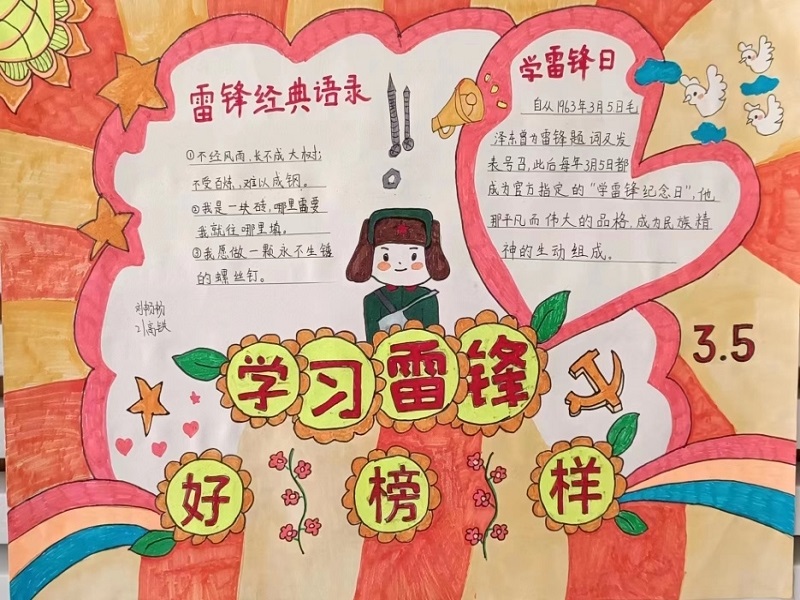 雷锋经典语录
①不经风雨,长不成大树;
不受百炼,难以成钢。
②我是一块砖,哪里需要
我就往哪里填。
③我愿做一颗永不生锈
的螺丝钉。
学雷锋日
自从1963年3月5日毛
泽东曾为雷锋题词又发
表号召,此后每年3月5日都
成为官方指定的“学雷锋纪念日”,他
那平凡而伟大的品格,成为民族精
神的生动组成。
3.5
学习雷锋
好榜样